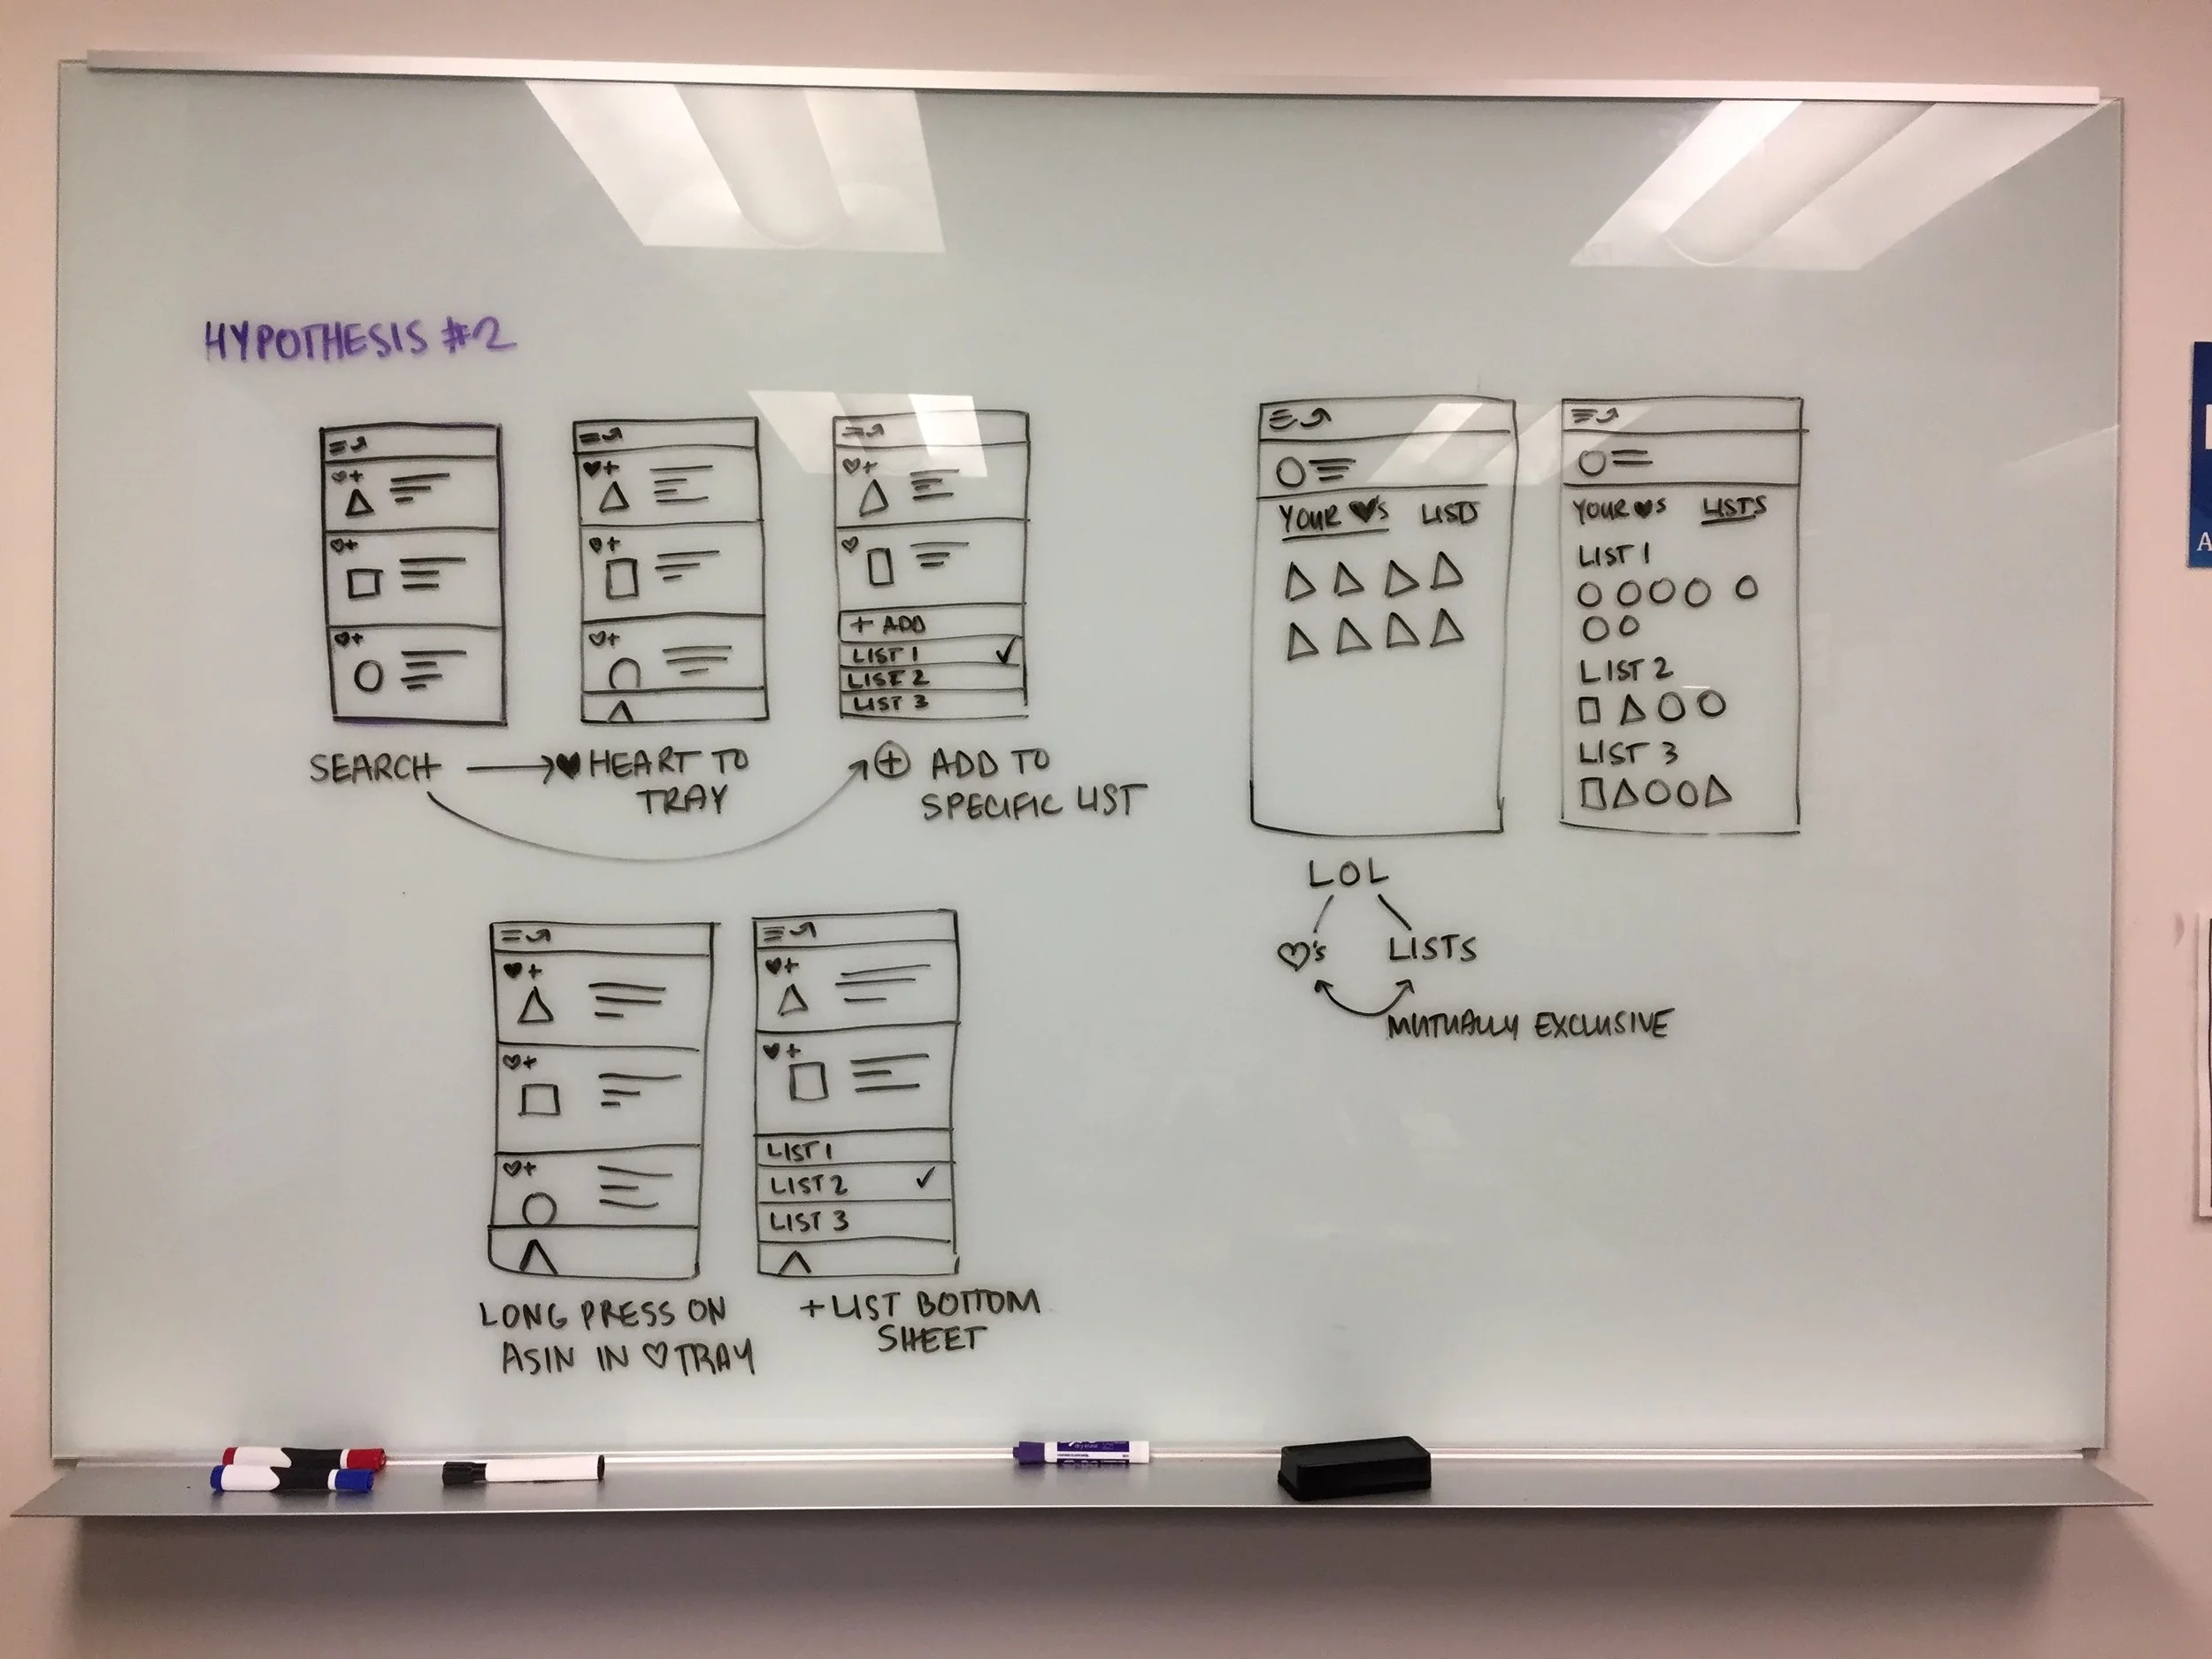 HYPOTHESIS #2
+ ADD
LIST 1
LIST 2
LIST 3
SEARCH
HEART TO
TRAY
ADD TO
SPECIFIC LIST
YOUR ♥'S LISTS
YOUR ♥S LISTS
LIST 1
LIST 2
LIST 3
LOL
♡'s LISTS
MUTUALLY EXCLUSIVE
LIST 1
LIST 2
LIST 3
LONG PRESS ON
ASIN IN ♡ TRAY
+ LIST BOTTOM
SHEET
A